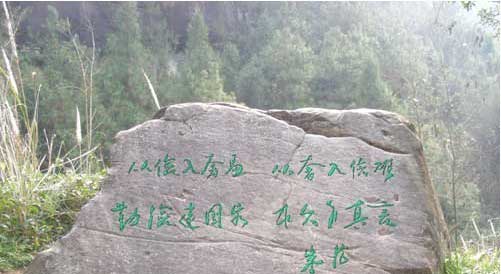 从俭入奢易 从奢入俭难
勤俭建国家 永久是真言